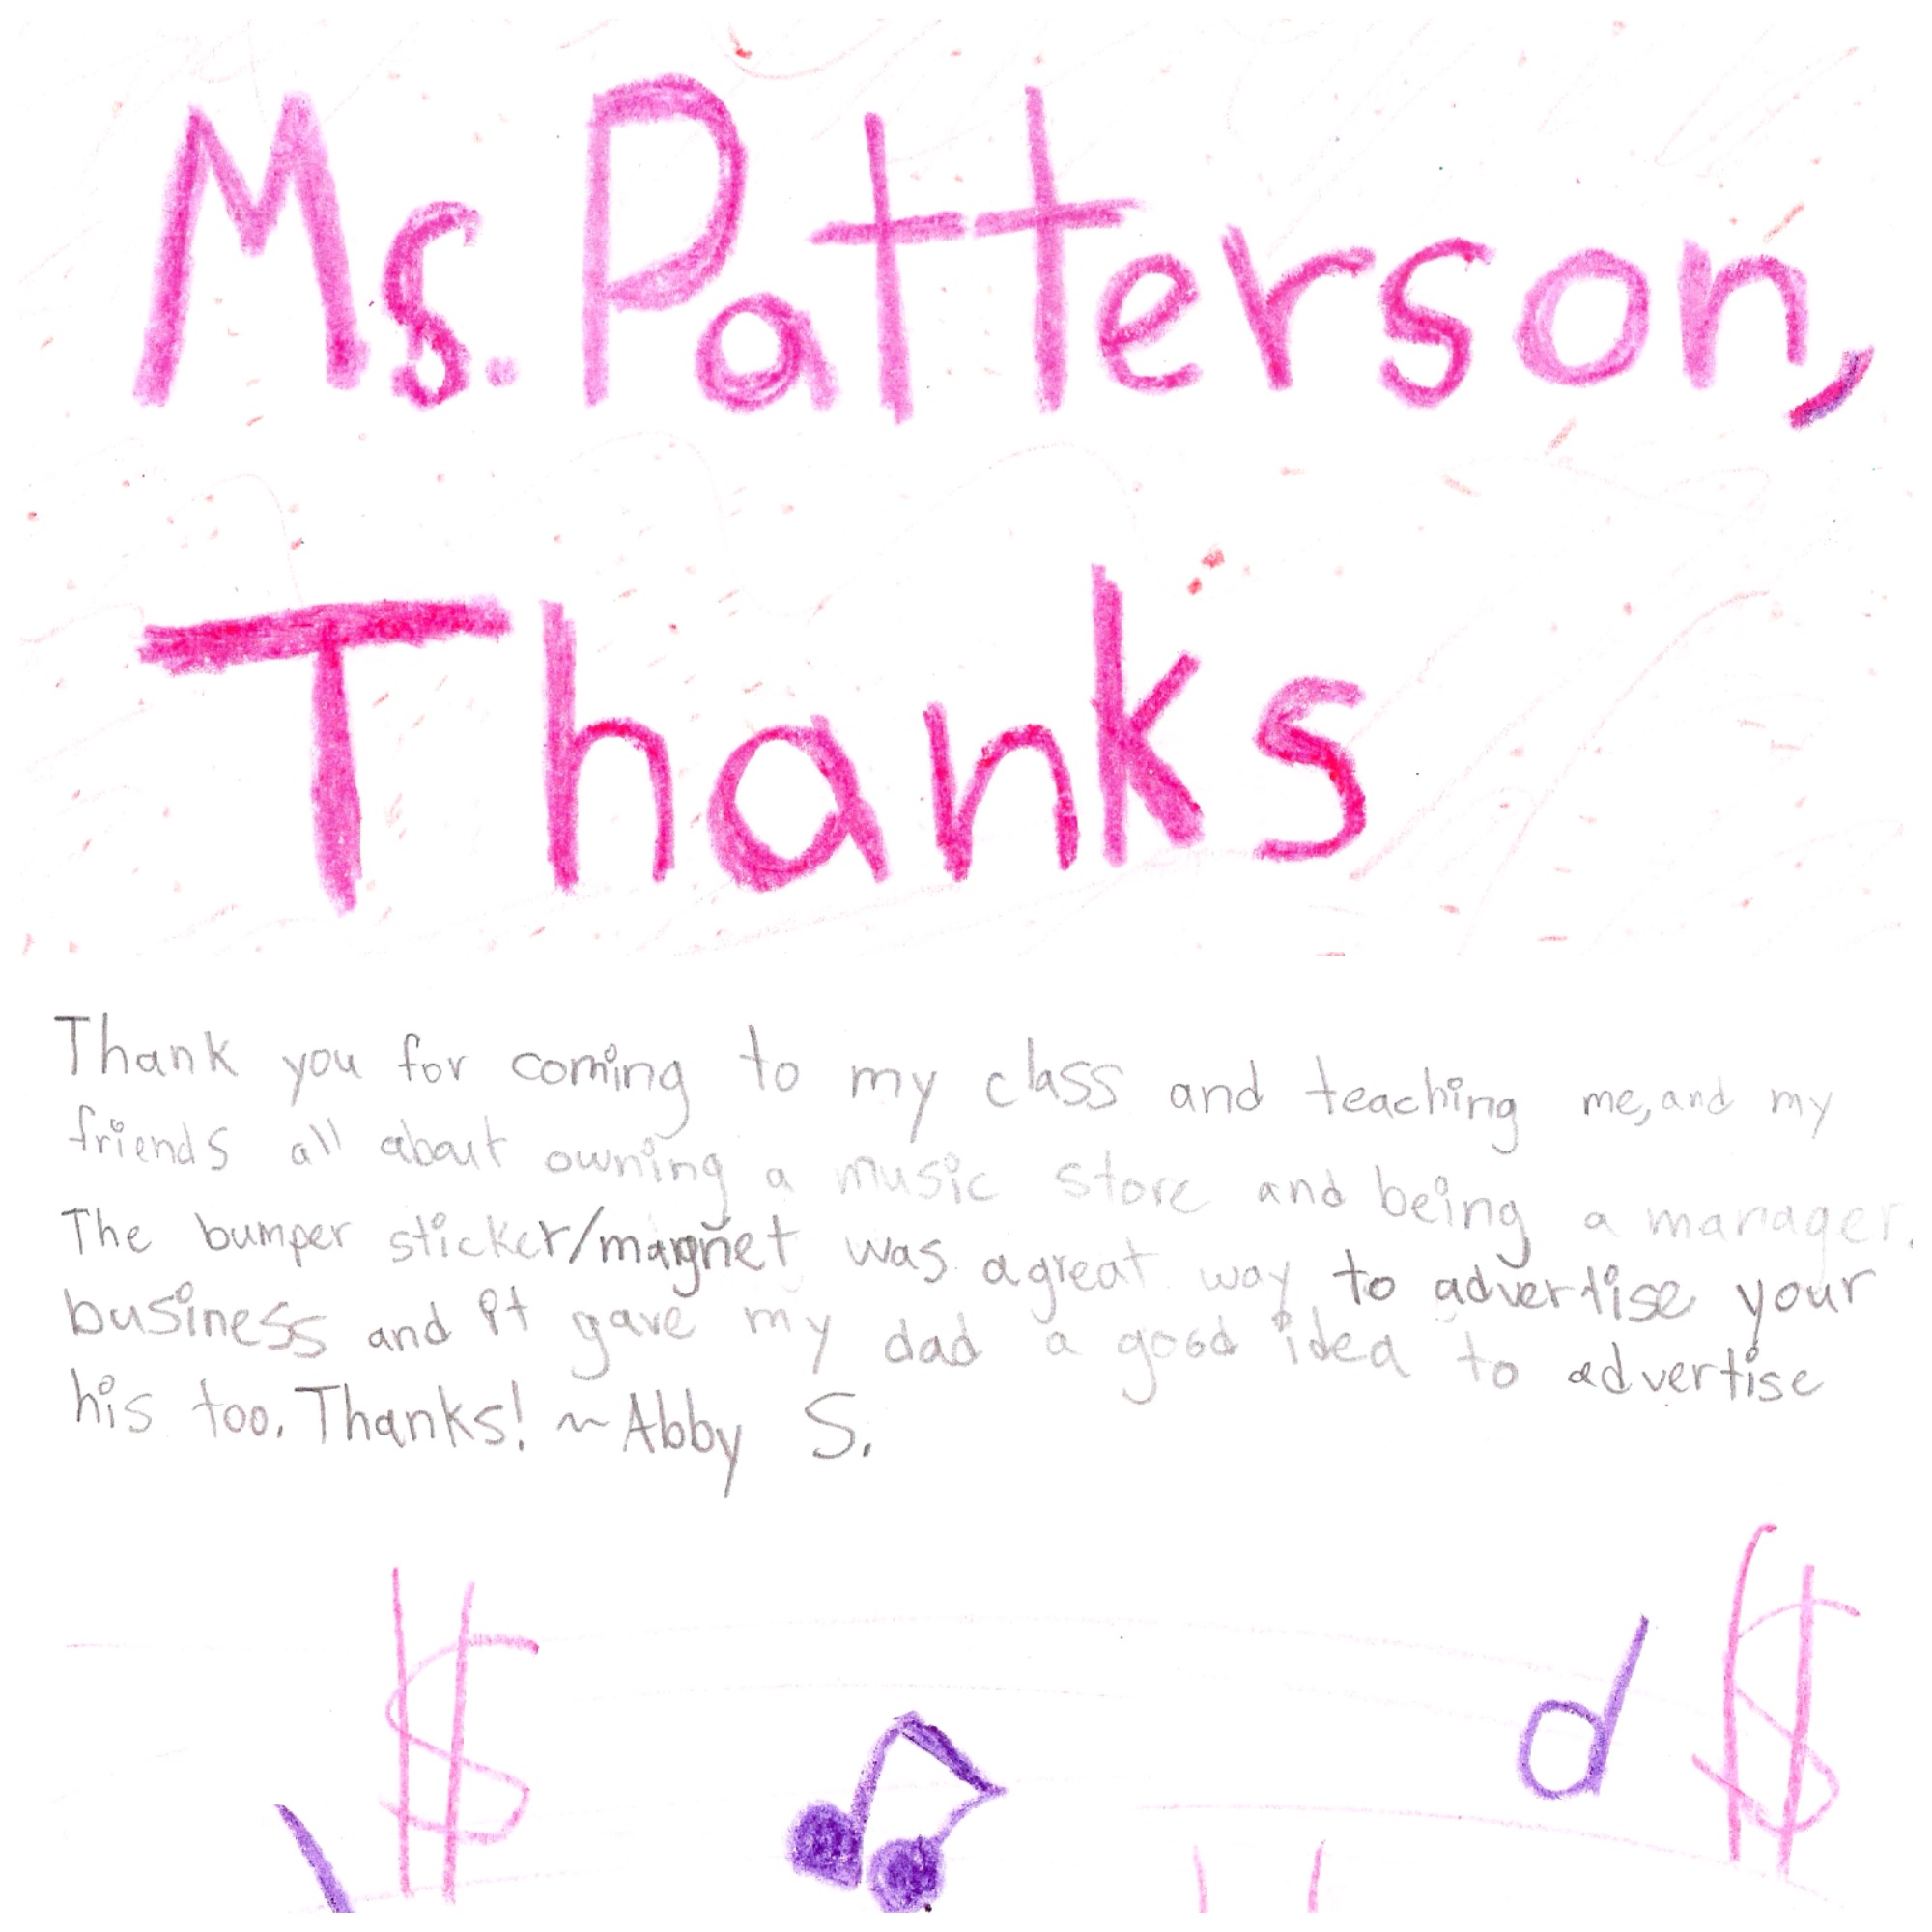 Ms. Patterson,
Thanks
Thank you for coming to my class and teaching me, and my
friends all about owning a music store and being a manager.
The bumper sticker/magnet was a great way to advertise your
business and it gave my dad a good idea to advertise
his too. Thanks! ~Abby S.